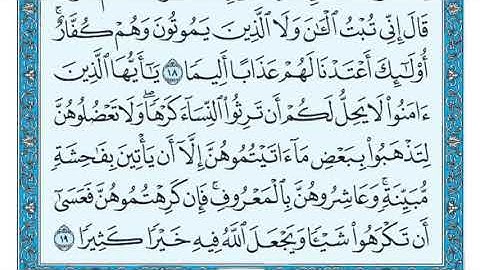 قَالَ إِنِّى تُبْتُ ٱلْـَٰٔنَ وَلَا ٱلَّذِينَ يَمُوتُونَ وَهُمْ كُفَّارٌ ۚ
أُو۟لَـٰٓئِكَ أَعْتَدْنَا لَهُمْ عَذَابًا أَلِيمًا ١٨ يَـٰٓأَيُّهَا ٱلَّذِينَ
ءَامَنُوا۟ لَا يَحِلُّ لَكُمْ أَن تَرِثُوا۟ ٱلنِّسَآءَ كَرْهًا ۖ وَلَا تَعْضُلُوهُنَّ
لِتَذْهَبُوا۟ بِبَعْضِ مَآ ءَاتَيْتُمُوهُنَّ إِلَّآ أَن يَأْتِينَ بِفَـٰحِشَةٍ
مُّبَيِّنَةٍ ۚ وَعَاشِرُوهُنَّ بِٱلْمَعْرُوفِ ۚ فَإِن كَرِهْتُمُوهُنَّ فَعَسَىٰٓ
أَن تَكْرَهُوا۟ شَيْـًٔا وَيَجْعَلَ ٱللَّهُ فِيهِ خَيْرًا كَثِيرًا ١٩